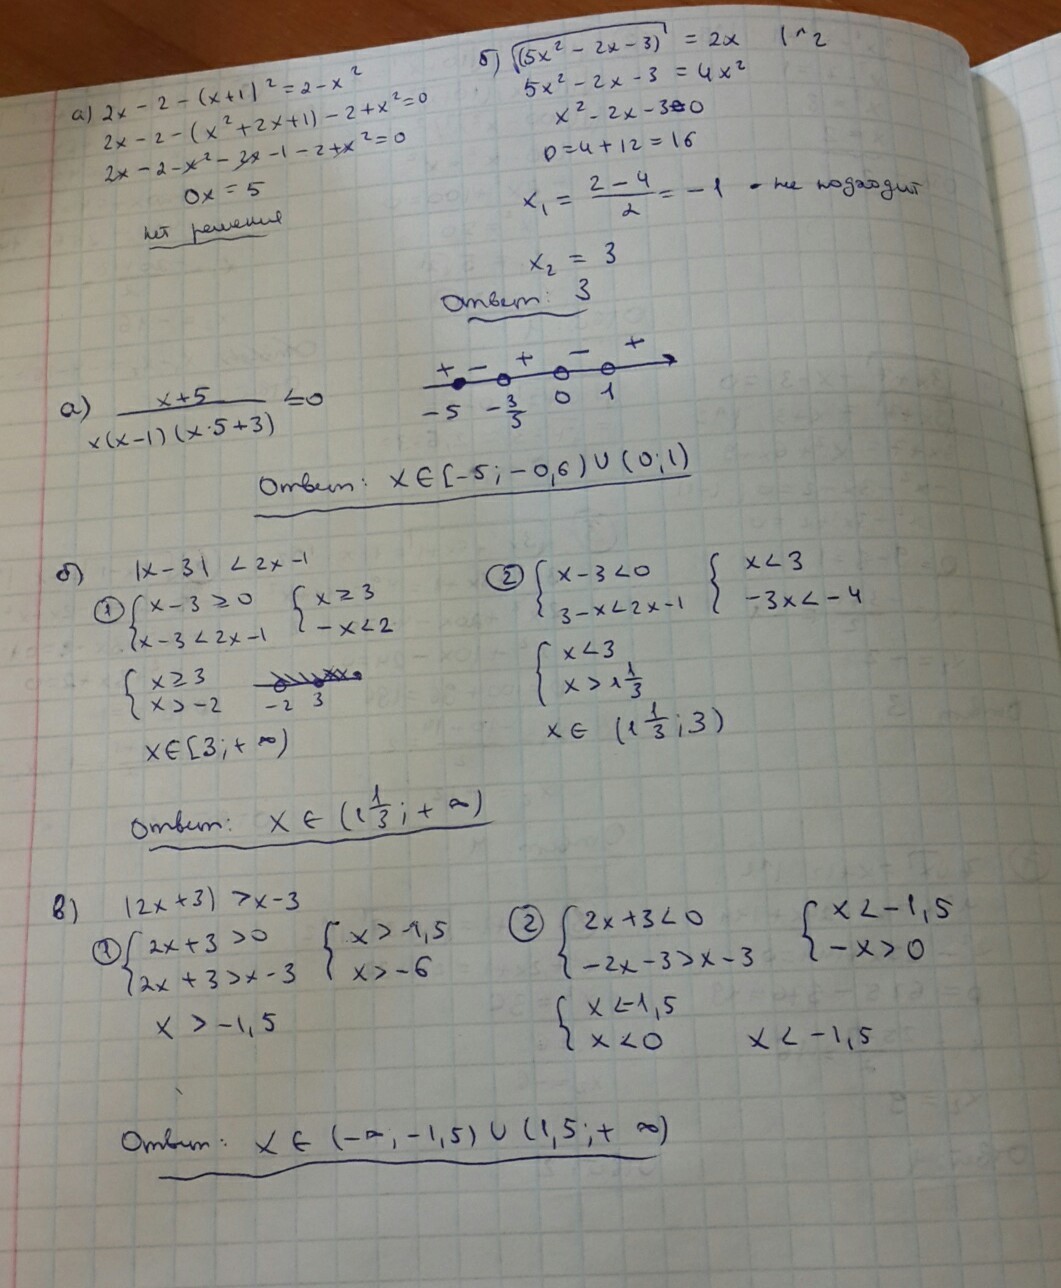 а) 2x - 2 - (x+1)² = 2 - x²
2x - 2 - (x² + 2x + 1) - 2 + x² = 0
2x - 2 - x² - 2x - 1 - 2 + x² = 0
0x = 5
нет решения
б) √(5x² - 2x - 3) = 2x |^2
5x² - 2x - 3 = 4x²
x² - 2x - 3 = 0
D = 4 + 12 = 16
x₁ = (2 - 4)/2 = -1 - не подходит
x₂ = 3
Ответ: 3
а) (x+5)/(x(x-1)(x·5+3)) ≤ 0
+ - + - +
-5 -3/5 0 1
Ответ: x ∈ [-5; -0,6) ∪ (0; 1)
б) |x-3| < 2x-1
① { x-3 ≥ 0 { x ≥ 3
x-3 < 2x-1 -x < 2
{ x ≥ 3
x > -2 -2 3
x ∈ [3; +∞)
② { x-3 < 0 { x < 3
3-x < 2x-1 -3x < -4
{ x < 3
x > 1 1/3
x ∈ (1 1/3; 3)
Ответ: x ∈ (1 1/3; +∞)
в) |2x+3| > x-3
① { 2x+3 > 0 { x > -1,5
2x+3 > x-3 x > -6
x > -1,5
② { 2x+3 < 0 { x < -1,5
-2x-3 > x-3 -x > 0
{ x < -1,5
x < 0 x < -1,5
Ответ: x ∈ (-∞; -1,5) ∪ (1,5; +∞)